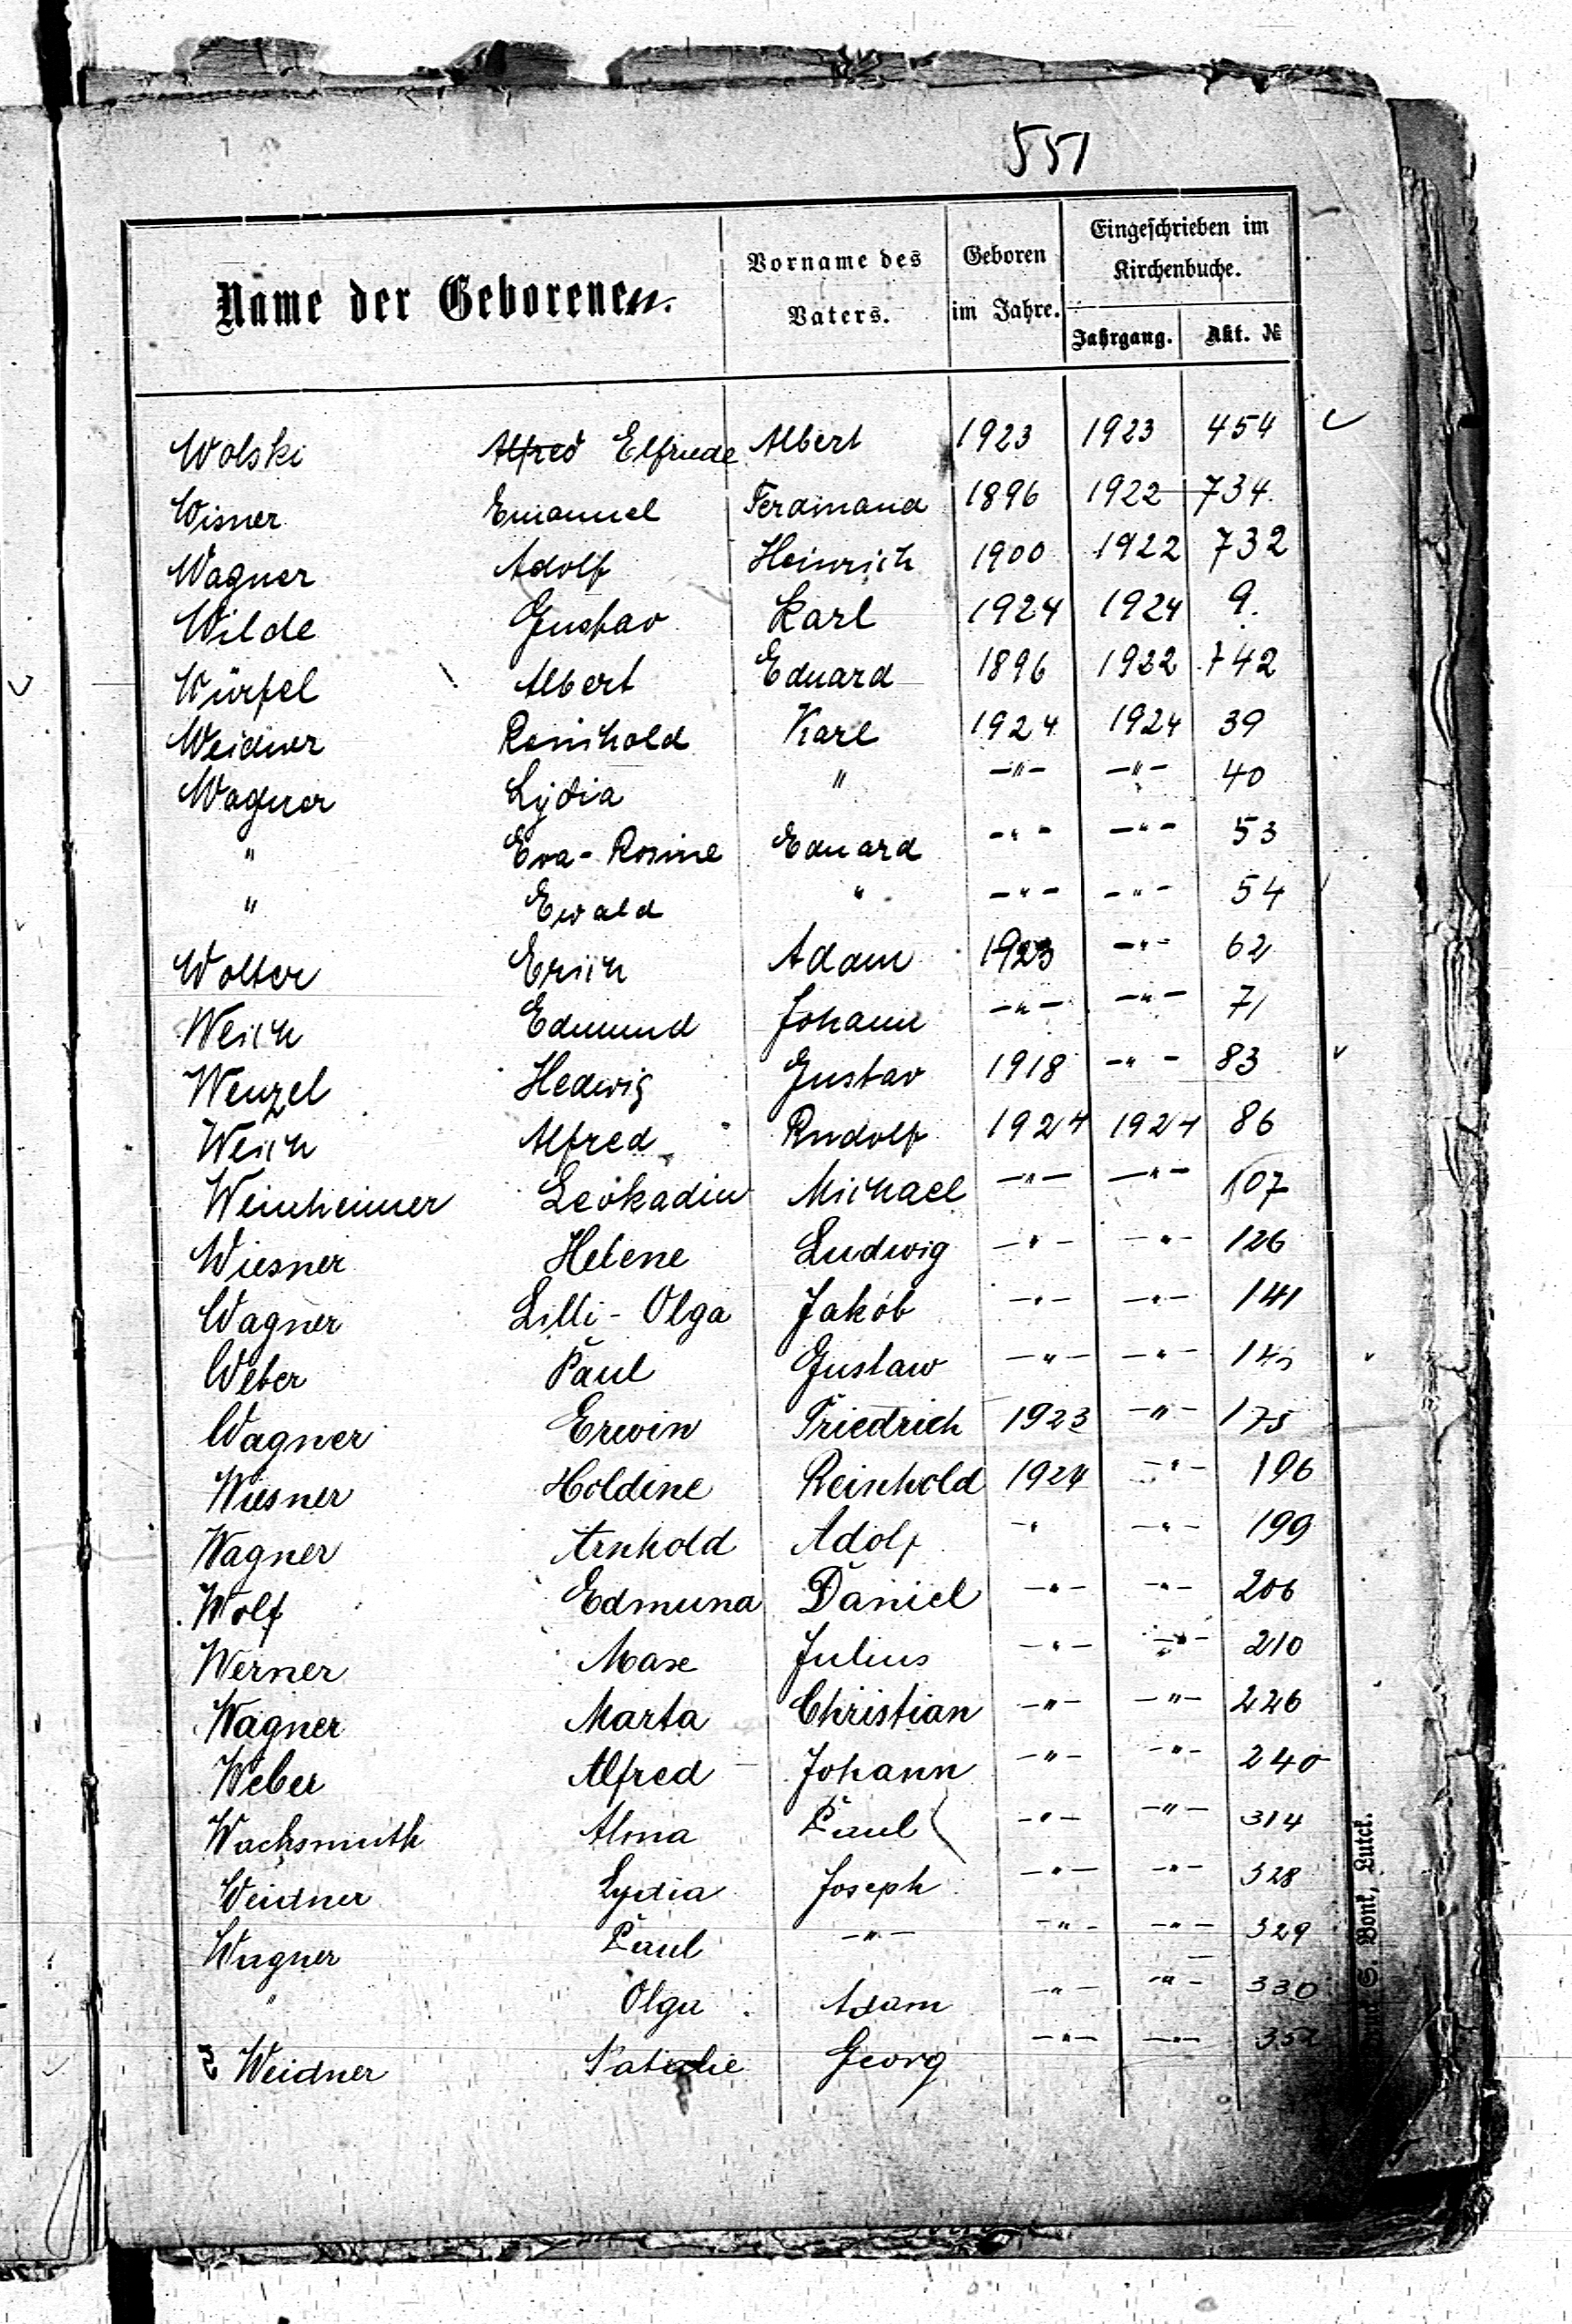 551
Name der Geborenen. Vorname des Vaters. Geboren im Jahre. Eingeschrieben im Kirchenbuche. Jahrgang. Akt. №
Wolski Alfred Elfriede Albert 1923 1923 454
Wisner Emanuel Ferdinand 1896 1922 734
Wagner Adolf Heinrich 1900 1922 732
Wilde Gustav Karl 1924 1924 9.
Würfel Albert Eduard 1896 1922 742
Weidner Reinhold Karl 1924 1924 39
Wagner Lydia " -"- -"- 40
" Eva-Rosine Eduard -"- -"- 53
" Ewald " -"- -"- 54
Wolter Erich Adam 1923 -"- 62
Weich Edmund Johann -"- -"- 71
Wenzel Hedwig Gustav 1918 -"- 83
Weich Alfred Rudolf 1924 1924 86
Weinheimer Leokadia Michael -"- -"- 107
Wiesner Helene Ludwig -"- -"- 126
Wagner Lilli-Olga Jakob -"- -"- 141
Weber Paul Gustaw -"- -"-
Wagner Erwin Friedrich 1923 -"- 175
Wiesner Holdine Reinhold 1924 -"- 196
Wagner Arnhold Adolf -" -"- 199
Wolf Edmund Daniel -"- -"- 206
Werner Max Julius -"- -"- 210
Wagner Marta Christian -"- -"- 226
Weber Alfred Johann -"- -"- 240
Wachsmuth Alma Paul -"- -"- 314
Weidner Lydia Joseph -"- -"- 328
Wagner Paul -"- -"- -"- 329
" Olga Adam -"- -"- 330
Weidner Natalie Georg -"- -"-
S. Bonk, Lutck.